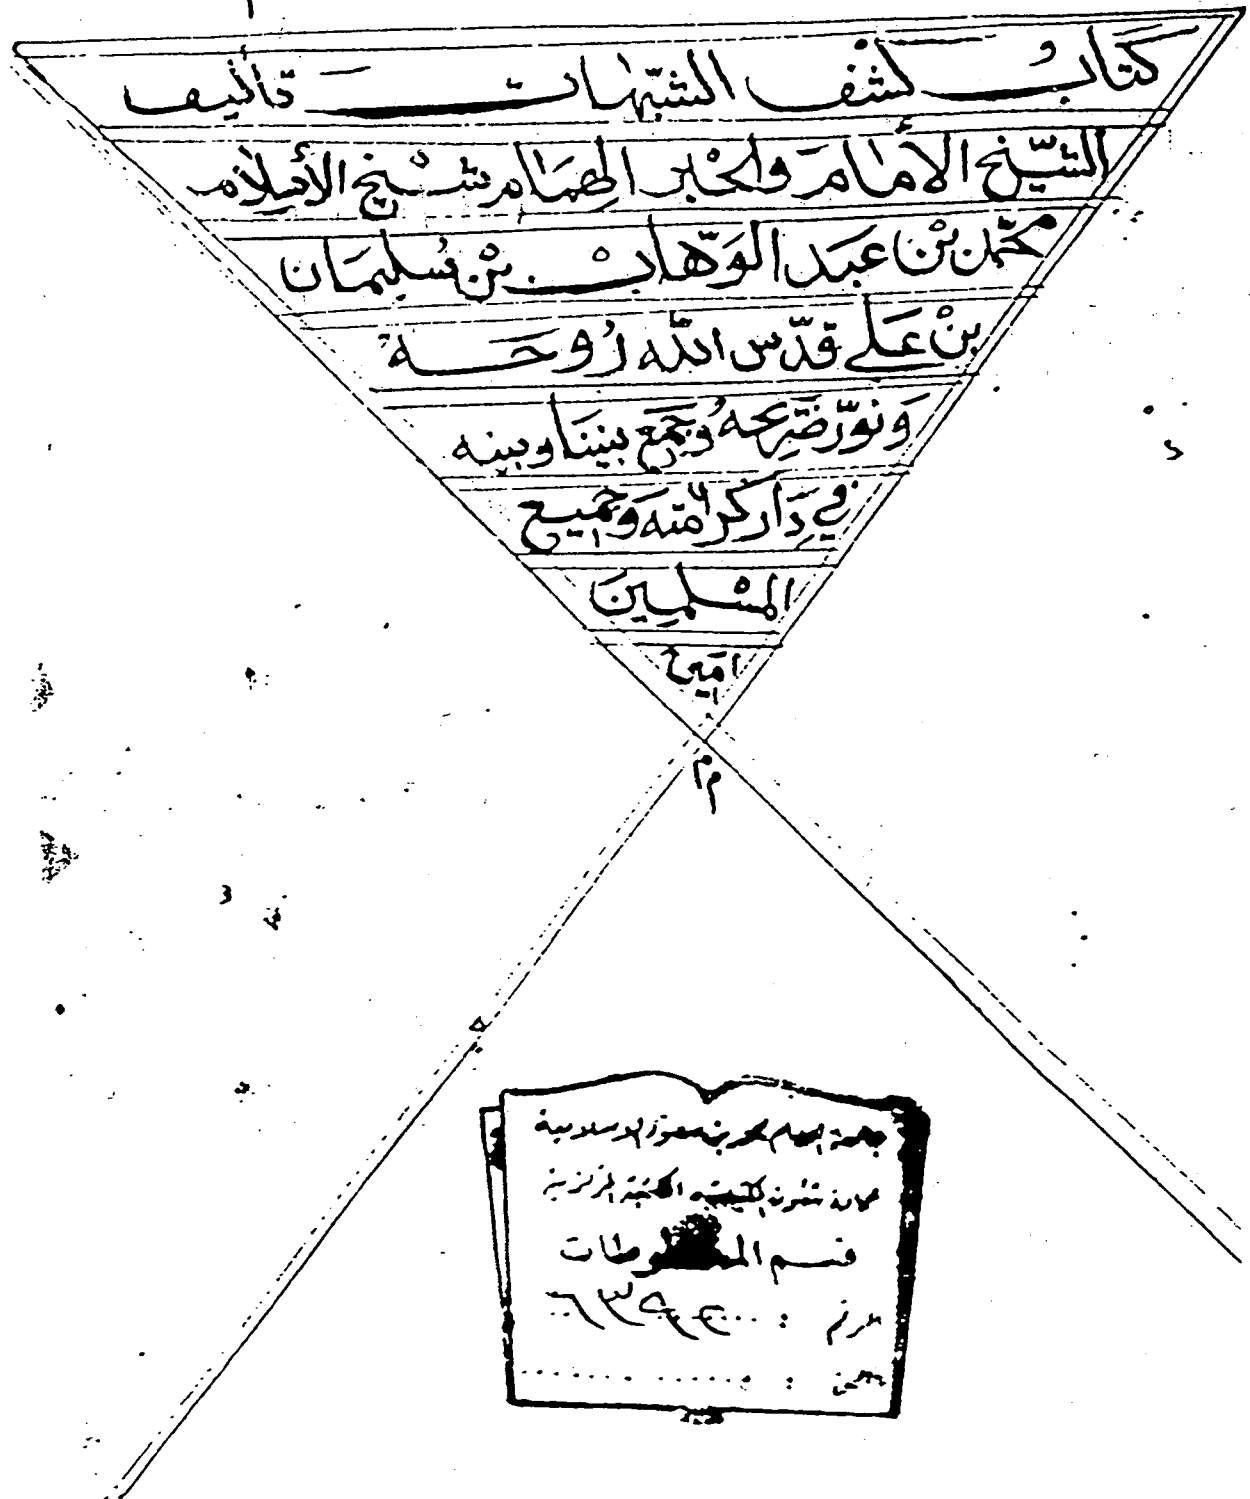 كتابُ كشف الشبّهات تأليف
الشّيخ الأمام والحْبر الهمام شيْخ الأسلام
محمّد بْن عَبد الوَهّاب بْن سُليمان
بنْ عَلي قدّس اللّه رُوحَه
وَنوّر ضَريحه وُجمَع بيننا وبينه
في دَار كرامته وَجميع
المسْلمِينَ
امَين
م م
جامعة الإمام محمد بن سعود الإسلامية
عمادة شئون المكتبات المكتبة المركزية
قسم المخطوطات
الرقم :